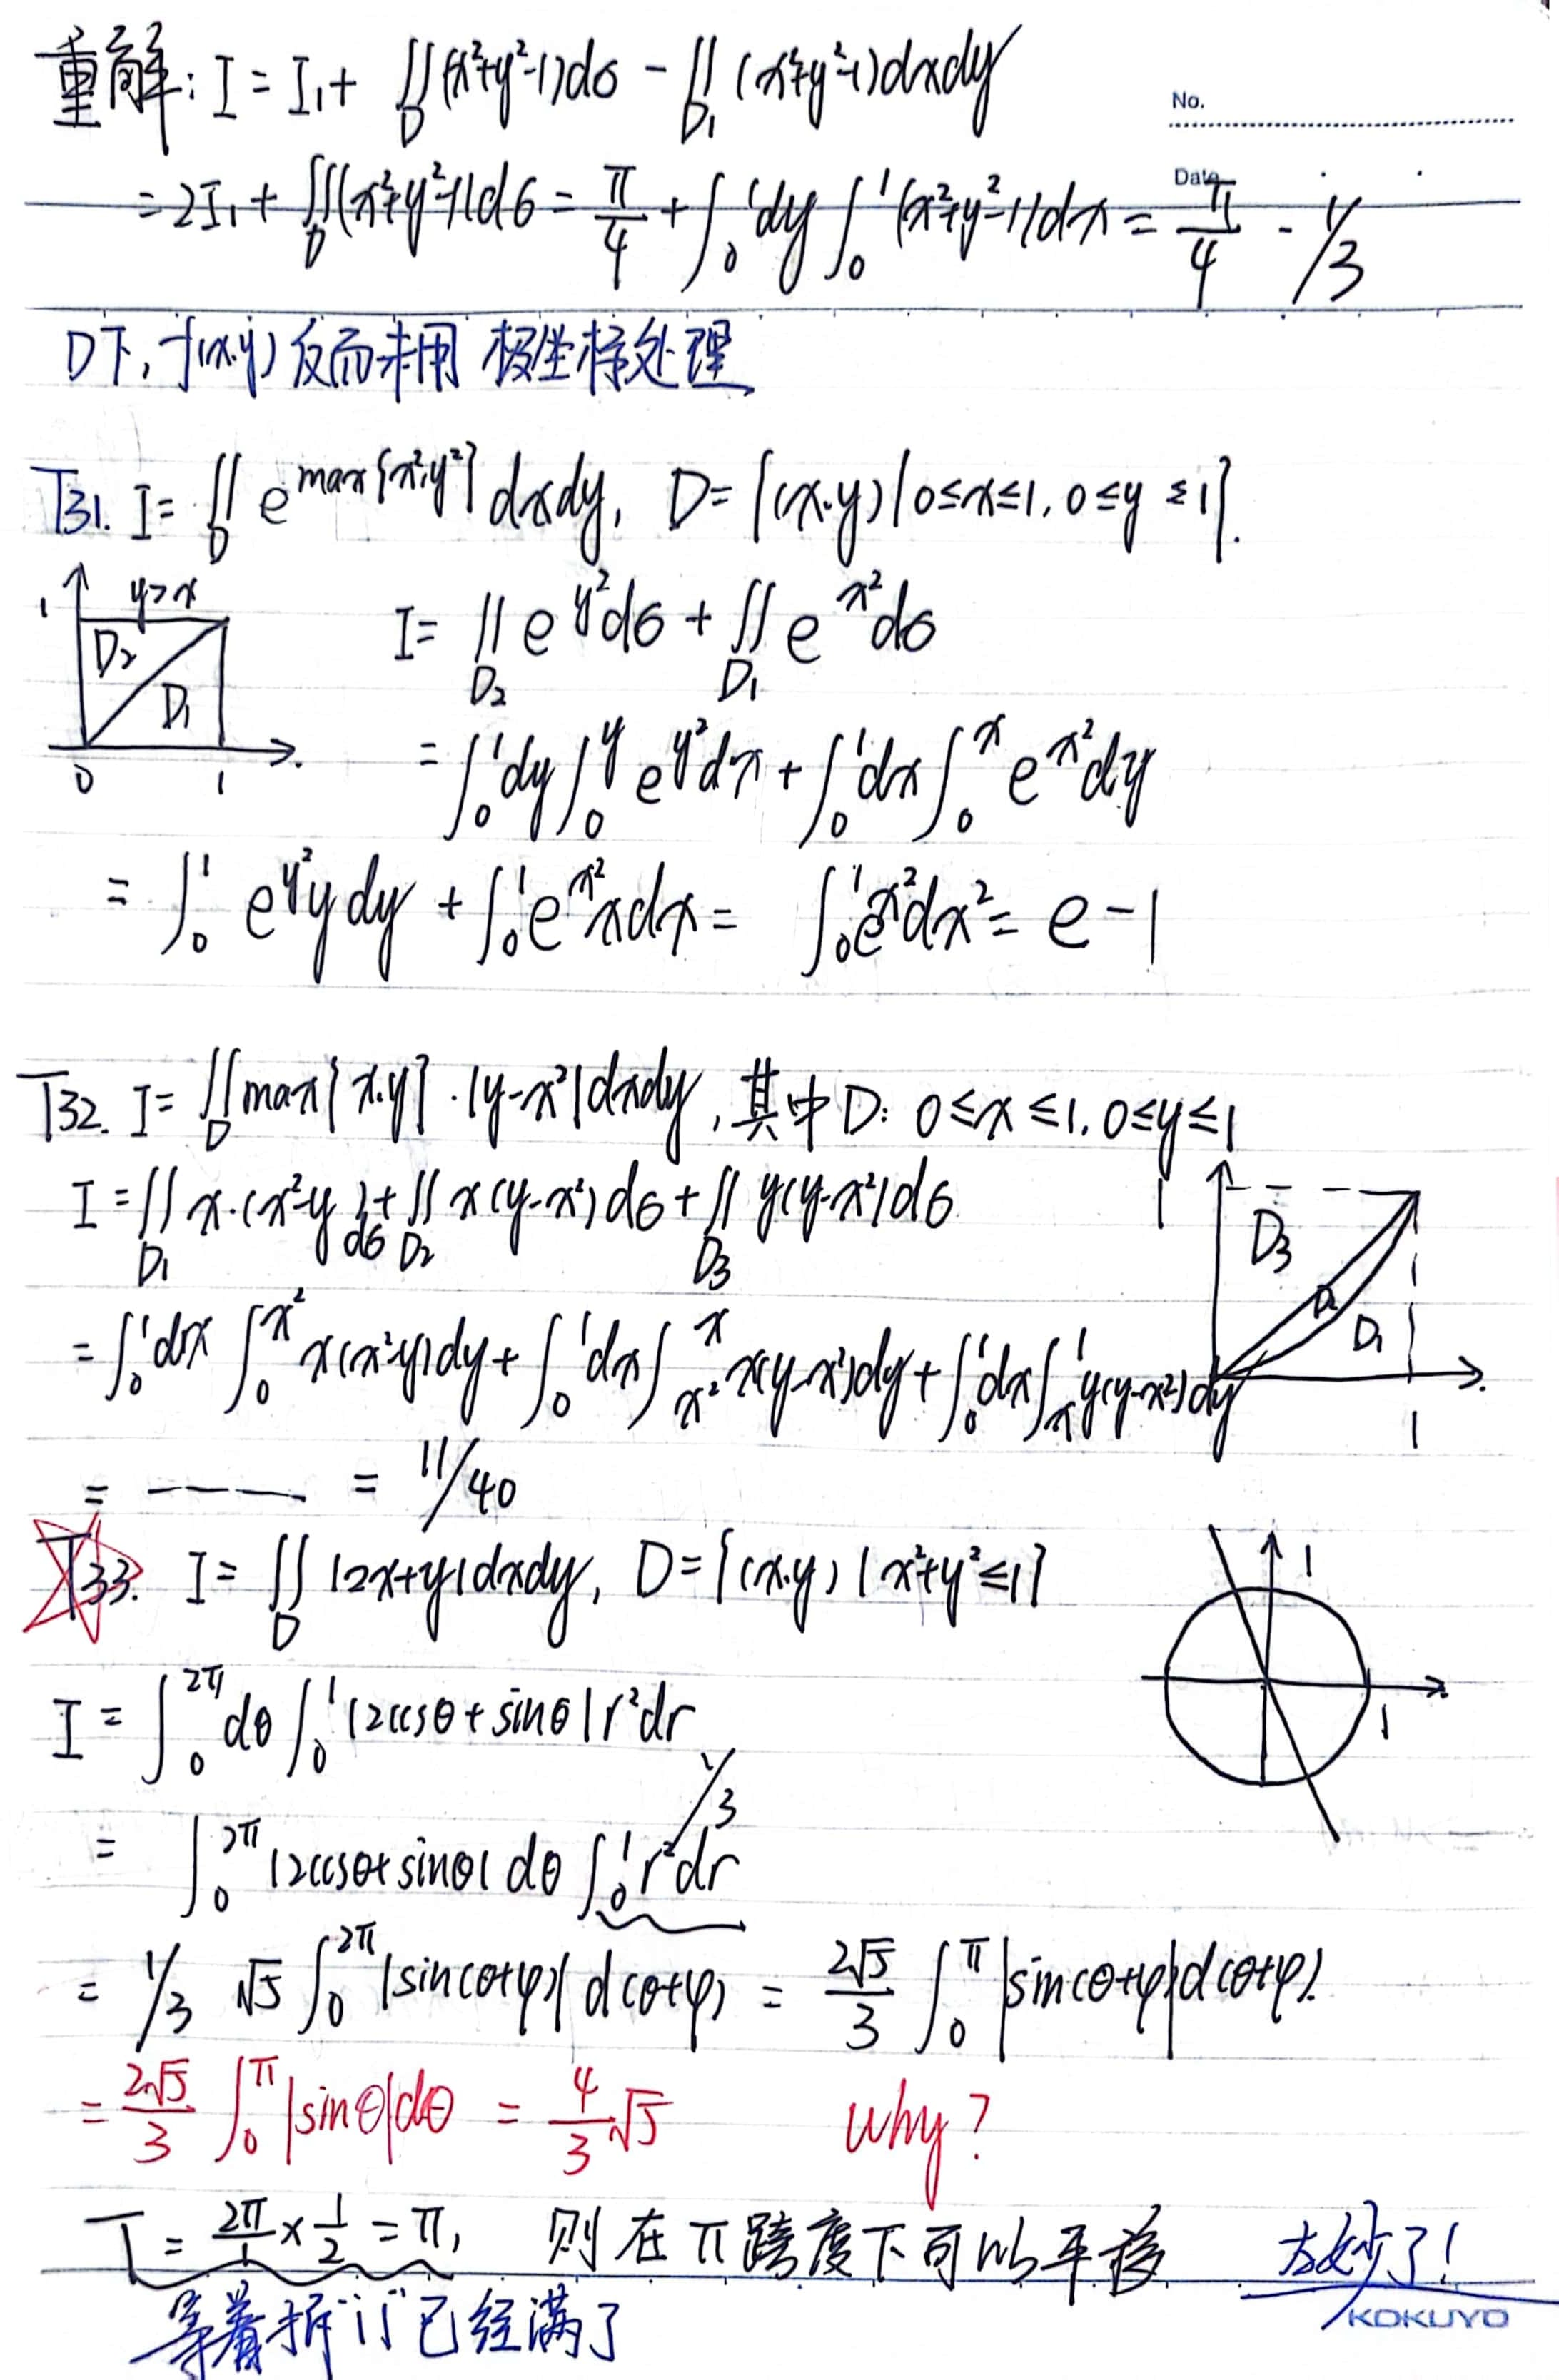 重解: I = I₁ + ∬_D (x²+y²-1)dσ - ∬_D₁ (x²+y²-1)dxdy
No.
Date
= 2I₁ + ∬_D (x²+y²-1)dσ = π/4 + ∫₀¹dy∫₀¹(x²+y²-1)dx = π/4 - 1/3
D下, f(x,y) 反而未用 极坐标处理
T31. I = ∬_D e^max{x²,y²} dxdy, D = {(x,y) | 0≤x≤1, 0≤y≤1}.
1 y>x D₂ D₁ 0 1
I = ∬_D₂ e^y² dσ + ∬_D₁ e^x² dσ
= ∫₀¹dy∫₀^y e^y² dx + ∫₀¹dx∫₀^x e^x² dy
= ∫₀¹ e^y² y dy + ∫₀¹ e^x² x dx = ∫₀¹ e^x² dx² = e-1
T32. I = ∬_D max{x,y}·|y-x²|dxdy, 其中D: 0≤x≤1, 0≤y≤1
I = ∬_D₁ x·(x²-y)dσ + ∬_D₂ x(y-x²)dσ + ∬_D₃ y(y-x²)dσ
1 D₃ D₂ D₁ 1
= ∫₀¹dx∫₀^x² x(x²-y)dy + ∫₀¹dx∫_x²^x x(y-x²)dy + ∫₀¹dx∫_x^1 y(y-x²)dy
= ———— = 11/40
T33. I = ∬_D |2x+y|dxdy, D = {(x,y) | x²+y²≤1}
1 1
I = ∫₀^2π dθ∫₀¹ |2cosθ+sinθ| r²dr
1/3
= ∫₀^2π |2cosθ+sinθ| dθ ∫₀¹ r²dr
= 1/3 √5 ∫₀^2π |sin(θ+φ)| d(θ+φ) = 2√5/3 ∫₀^π |sin(θ+φ)|d(θ+φ).
= 2√5/3 ∫₀^π |sinθ|dθ = 4/3 √5 why?
T = 2π/1 × 1/2 = π, 则在π跨度下可以平移 太妙了!
等着拆"||"已经满了
KOKUYO